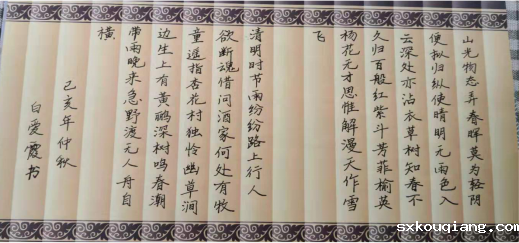 山光物态弄春晖莫为轻阴
便拟归纵使晴明无雨色入
云深处亦沾衣草树知春不
久归百般红紫斗芳菲榆英
杨花无才思惟解漫天作雪
飞
清明时节雨纷纷路上行人
欲断魂借问酒家何处有牧
童遥指杏花村独怜幽草涧
边生上有黄鹂深树鸣春潮
带雨晚来急野渡无人舟自
横
己亥年仲秋
白爱霞书
sxkouqiang.com